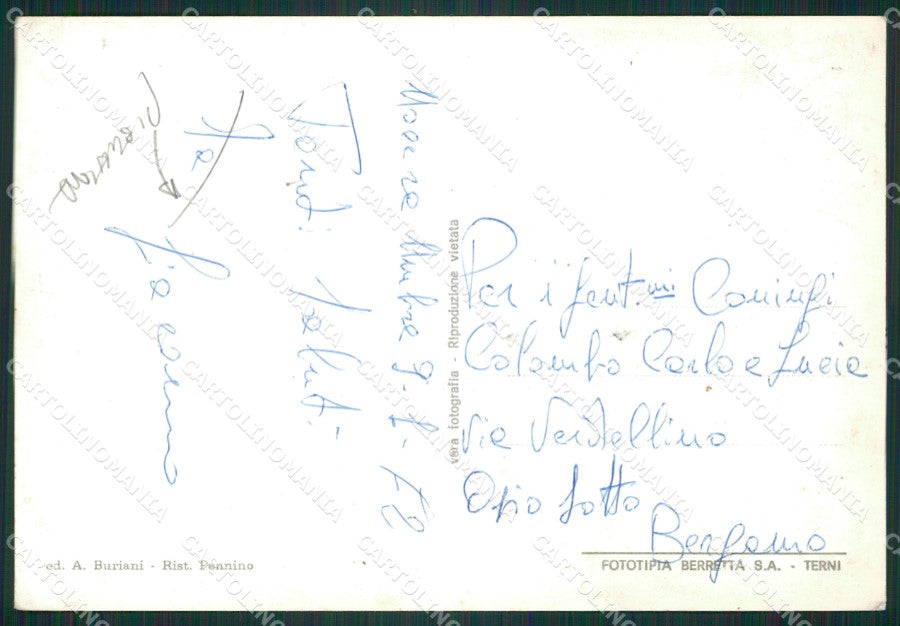 Nocera Umbra 9-8-72
Tanti saluti
da
Giacomo
Per i gent.mi Coniugi
Colombo Carlo e Lucia
via Verdellino
Osio Sotto
Bergamo
vera fotografia - Riproduzione vietata
ed. A. Buriani - Rist. Pennino
FOTOTIPIA BERRETTA S.A. - TERNI
CARTOLINOMANIA